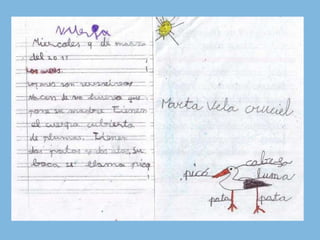 Miercoles 9 de marzo
del 2011
Las aves.
nacen de un huevo que
pone su madre. Tienen
el cuerpo cubierto
de plumas. Tienen
dos patas y dos alas, su
boca se llama pico
Marta Vela cruciel
cabesa
picó
luma
pata
pata